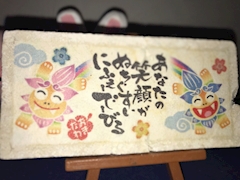 あなたの
笑顔が
ぬちぐすい
にふぇーでーびる